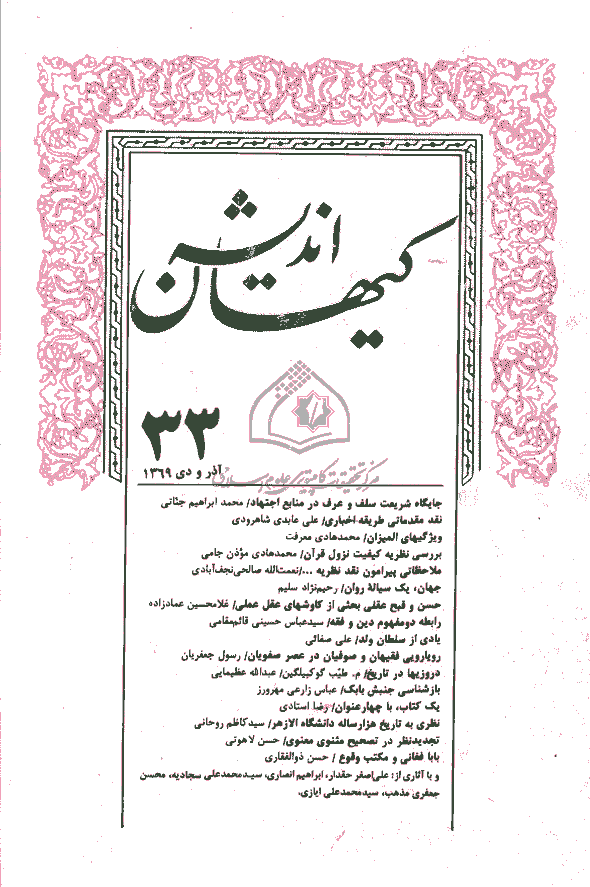 کیهان اندیشه
۳۳
آذر و دی ۱۳۶۹
مرکز تحقیقات کامپیوتری علوم اسلامی
جایگاه شریعت سلف و عرف در منابع اجتهاد/ محمد ابراهیم جنّاتی
نقد مقدماتی طریقه اخباری/ علی عابدی شاهرودی
ویژگیهای المیزان/ محمدهادی معرفت
بررسی نظریه کیفیت نزول قرآن/ محمدهادی مؤذن جامی
ملاحظاتی پیرامون نقد نظریه .../نعمت‌الله صالحی‌نجف‌آبادی
جهان، یک سیالهٔ روان/ رحیم‌نژاد سلیم
حسن و قبح عقلی بحثی از کاوشهای عقل عملی/ غلامحسین عمادزاده
رابطه دومفهوم دین و فقه/ سیدعباس حسینی قائم‌مقامی
یادی از سلطان ولد/ علی صفائی
رویارویی فقیهان و صوفیان در عصر صفویان/ رسول جعفریان
دروزیها در تاریخ/ م. طیّب گوکبیلگین/ عبدالله عظیمایی
بازشناسی جنبش بابک/ عباس زارعی مهرورز
یک کتاب، با چهارعنوان/ رضا استادی
نظری به تاریخ هزارساله دانشگاه الازهر/ سیدکاظم روحانی
تجدیدنظر در تصحیح مثنوی معنوی/ حسن لاهوتی
بابا فغانی و مکتب وقوع / حسن ذوالفقاری
و با آثاری از: علی‌اصغر حقدار، ابراهیم انصاری، سیدمحمدعلی سجادیه، محسن
جعفری مذهب، سیدمحمدعلی ایازی.